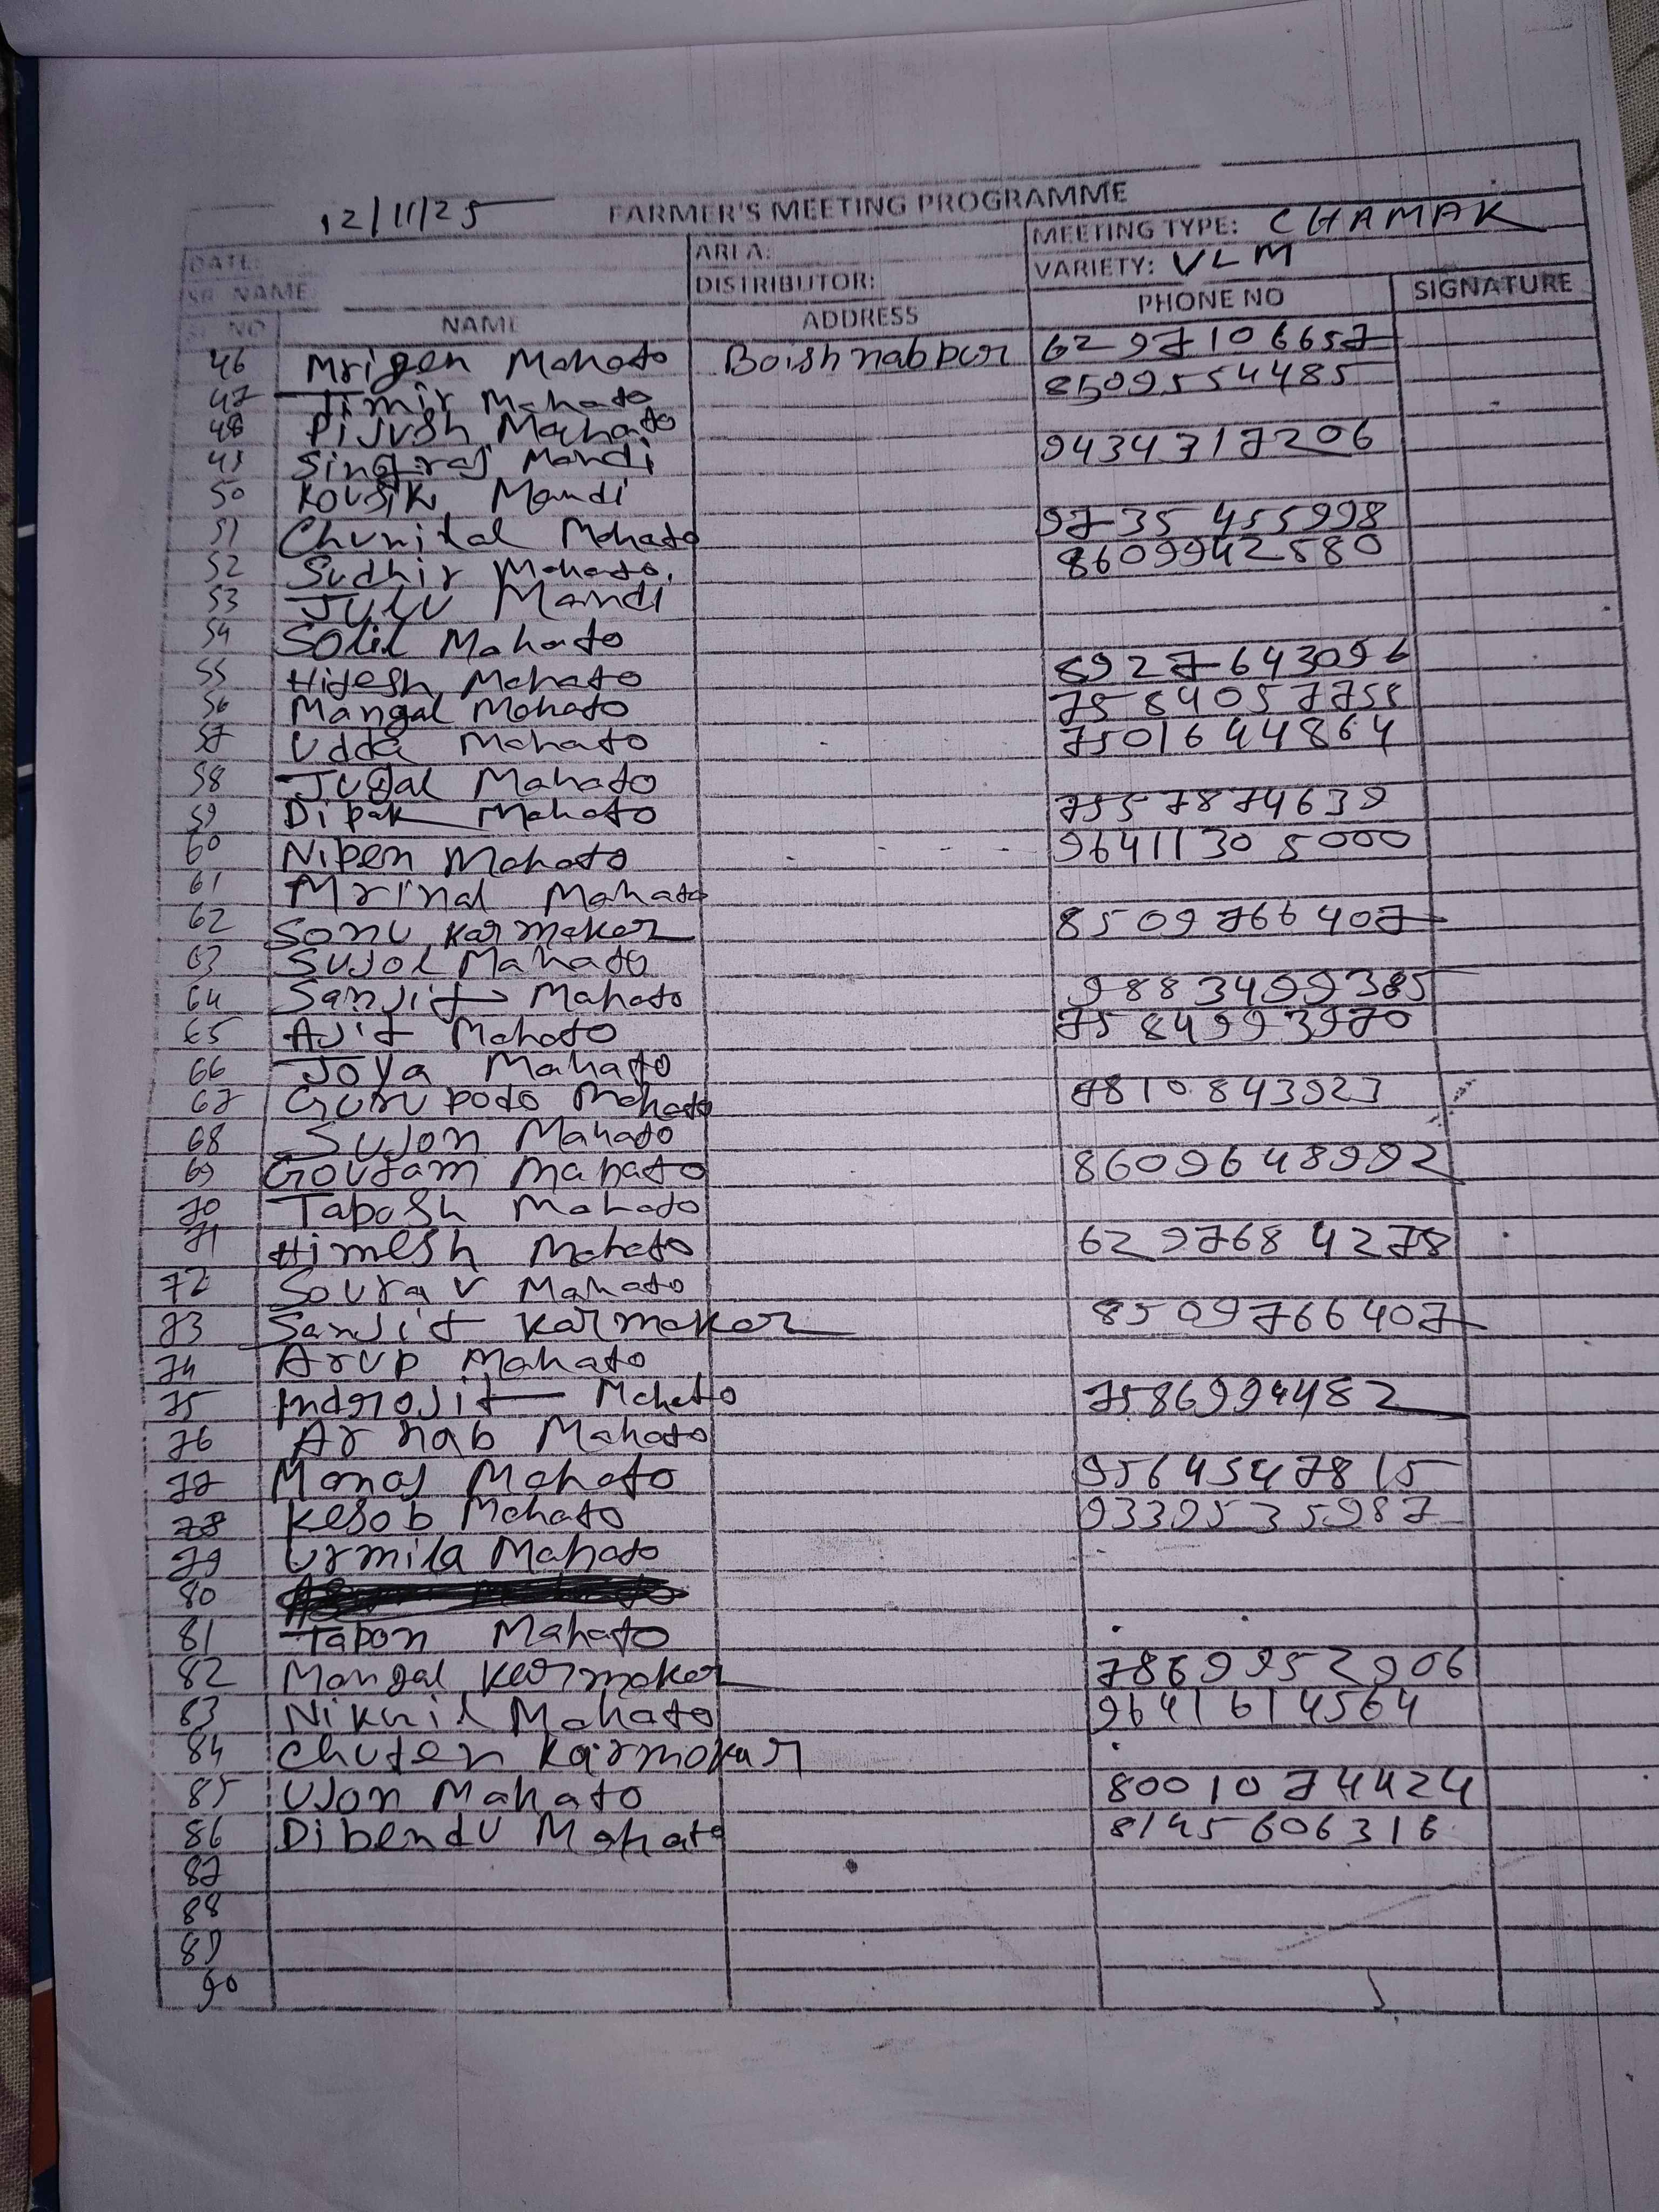 FARMER'S MEETING PROGRAMME
DATE: 12/11/25 AREA: MEETING TYPE: CHAMAK
SR NAME DISTRIBUTOR: VARIETY: VLM
SL NO NAME ADDRESS PHONE NO SIGNATURE
46 Mrigen Mahato Boishnabpur 6297106657
47 Timir Mahato 8509554485
48 Pijush Mahato
49 Singraj Mandi 9434317206
50 Kousik Mandi
51 Chunilal Mahato 9735455998
52 Sudhir Mahato, 8609942580
53 Julu Mandi
54 Solil Mahato
55 Hitesh Mahato 8927643096
56 Mangal Mahato 7584057758
57 Udda Mahato 7501644864
58 Jugal Mahato
59 Dipak Mahato 7557874639
60 Nipen Mahato 96411305000
61 Mrinal Mahato
62 Sonu Karmakar 8509766407
63 Sujol Mahato
64 Sanjit Mahato 9883499385
65 Ajit Mahato 7584993970
66 Joya Mahato
67 Gurupodo Mahato 7810843923
68 Sujon Mahato
69 Goutam Mahato 8609648992
70 Taposh Mahato
71 Himesh Mahato 6297684278
72 Sourav Mahato
73 Sanjit Karmakar 8509766407
74 Arup Mahato
75 Indrojit Mahato 7586994482
76 Arnab Mahato
77 Monoj Mahato 9564547815
78 Kesob Mahato 9339535987
79 Urmila Mahato
80
81 Tapon Mahato
82 Mongal Karmokar 7869952906
83 Nikhil Mahato 9641614564
84 Chuten Karmokar
85 Ujon Mahato 8001074424
86 Dibendu Mahato 8145606316
87
88
89
90